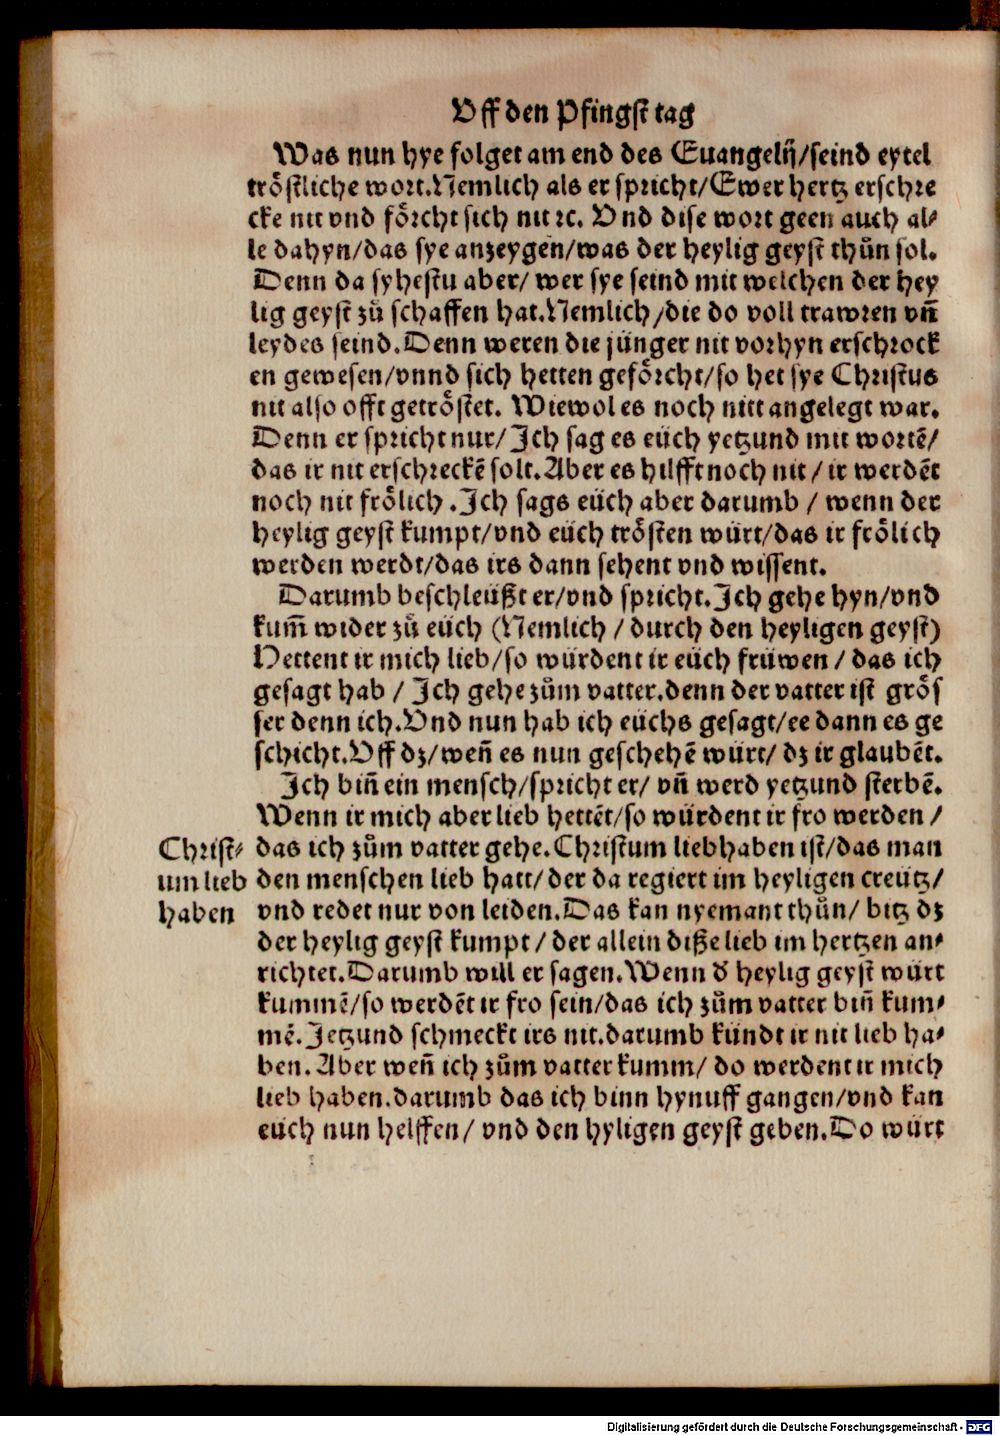 Vff den Pfingst tag
Was nun hye folget am end des Euangelij/seind eytel
tröstliche wort.Nemlich als er spricht/Ewer hertz erschre
cke nit vnd förcht sich nit ꝛc. Vnd dise wort geen auch al⸗
le dahyn/das sye anzeygen/was der heylig geyst thůn sol.
Denn da syhestu aber/ wer sye seind mit welchen der hey
lig geyst zů schaffen hat.Nemlich/die do voll trawren vñ
leydes seind.Denn weren die jünger nit vorhyn erschrock
en gewesen/vnnd sich hetten geförcht/so het sye Christus
nit also offt getröstet. Wiewol es noch nitt angelegt war.
Denn er spricht nur/ Ich sag es eüch yetzund mit wortẽ/
das ir nit erschreckẽ solt.Aber es hilfft noch nit / ir werdẽt
noch nit frölich .Ich sags eüch aber darumb / wenn der
heylig geyst kumpt/vnd eüch trösten würt/das ir frölich
werden werdt/das irs dann sehent vnd wissent.
Darumb beschleüßt er/vnd spricht.Ich gehe hyn/vnd
kum̃ wider zů eüch (Nemlich / durch den heyligen geyst)
Hettent ir mich lieb/so würdent ir eüch früwen / das ich
gesagt hab / Ich gehe zům vatter.denn der vatter ist grös
ser denn ich.Vnd nun hab ich eüchs gesagt/ee dann es ge
schicht.Vff dz/weñ es nun geschehẽ würt/ dz ir glaubẽt.
Ich biñ ein mensch/spricht er/ vñ werd yetzund sterbẽ.
Wenn ir mich aber lieb hettẽt/so würdent ir fro werden /
das ich zům vatter gehe.Christum liebhaben ist/das man
den menschen lieb hatt/der da regiert im heyligen creütz/
vnd redet nur von leiden.Das kan nyemant thůn/ bitz dz
der heylig geyst kumpt / der allein diße lieb im hertzen an⸗
richtet.Darumb will er sagen.Wenn d' heylig geyst würt
kummẽ/so werdẽt ir fro sein/das ich zům vatter biñ kum⸗
mẽ.Jetzund schmeckt irs nit.darumb kündt ir nit lieb ha⸗
ben.Aber weñ ich zům vatter kumm/ do werdent ir mich
lieb haben.darumb das ich binn hynuff gangen/vnd kan
eüch nun helffen/ vnd den hyligen geyst geben.Do würt
Christ⸗
um lieb
haben
Digitalisierung gefördert durch die Deutsche Forschungsgemeinschaft - DFG